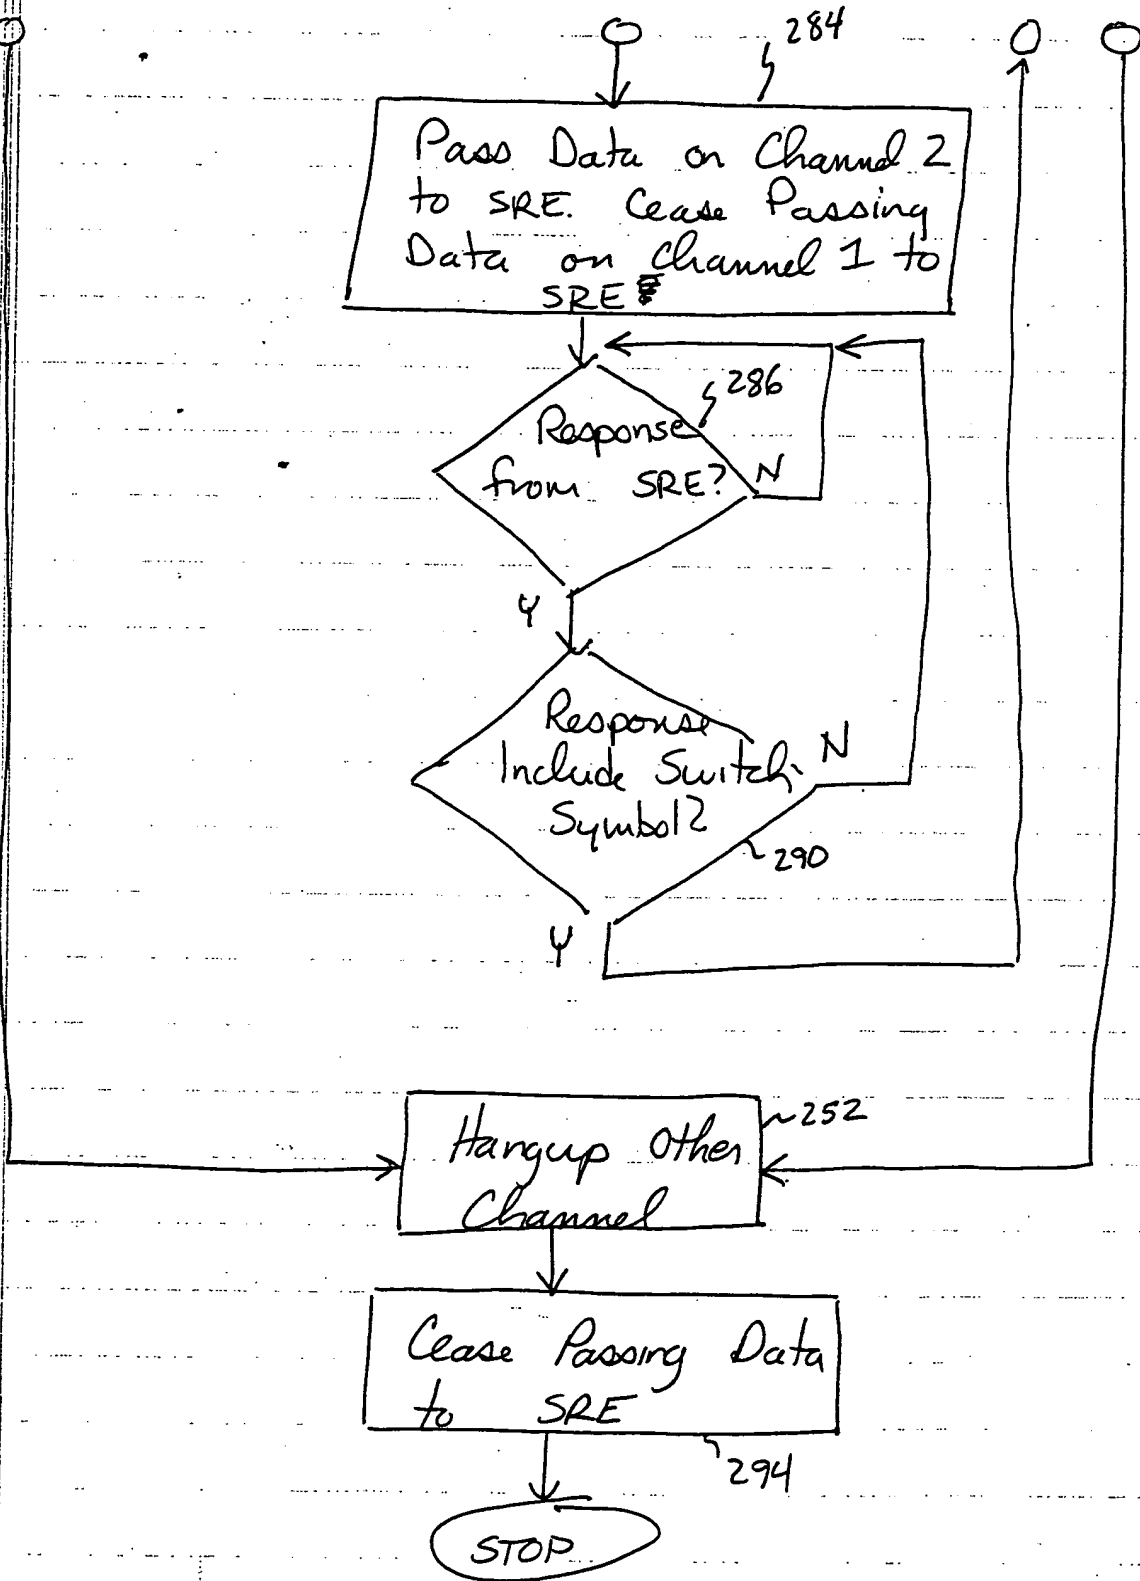 284
Pass Data on Channel 2
to SRE. Cease Passing
Data on Channel 1 to
SRE
286
Response
from SRE?
N
Y
Response
Include Switch
Symbol?
N
290
Y
252
Hangup Other
Channel
Cease Passing Data
to SRE
294
STOP